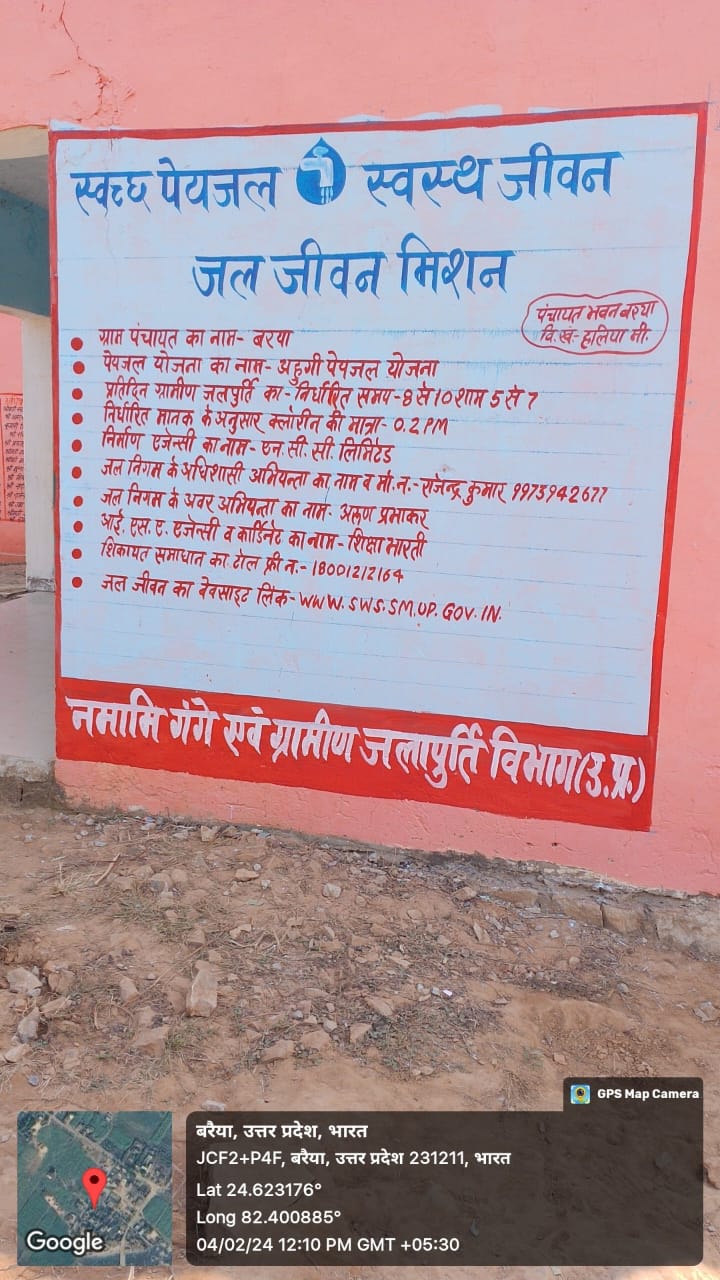 स्वच्छ पेयजल स्वस्थ जीवन
जल जीवन मिशन
पंचायत भवन बरया
वि.खं:- हलिया मी.
ग्राम पंचायत का नाम- बरया
पेयजल योजना का नाम- अहुगी पेयजल योजना
प्रतिदिन ग्रामीण जलपुर्ति का- निर्धारित समय-8 से 10 शाम 5 से 7
निर्धारित मानक के अनुसार क्लोरीन की मात्रा- 0.2 PM
निर्माण एजेन्सी का नाम- एन. सी. सी. लिमिटेड
जल निगम के अधिशासी अभियन्ता का नाम व मो.न.- राजेन्द्र कुमार 9973942677
जल निगम के अवर अभियन्ता का नाम- अरूण प्रभाकर
आई. एस. ए. एजेन्सी व कार्डिनेट का नाम- शिक्षा भारती
शिकायत समाधान का टोल फ्री न.- 18001212164
जल जीवन का वेवसाइट लिंक- WWW.SWS.SM.UP.GOV.IN.
नमामि गंगे एवं ग्रामीण जलापुर्ति विभाग (उ.प्र.)
GPS Map Camera
बरैया, उत्तर प्रदेश, भारत
JCF2+P4F, बरैया, उत्तर प्रदेश 231211, भारत
Lat 24.623176°
Long 82.400885°
04/02/24 12:10 PM GMT +05:30
Google